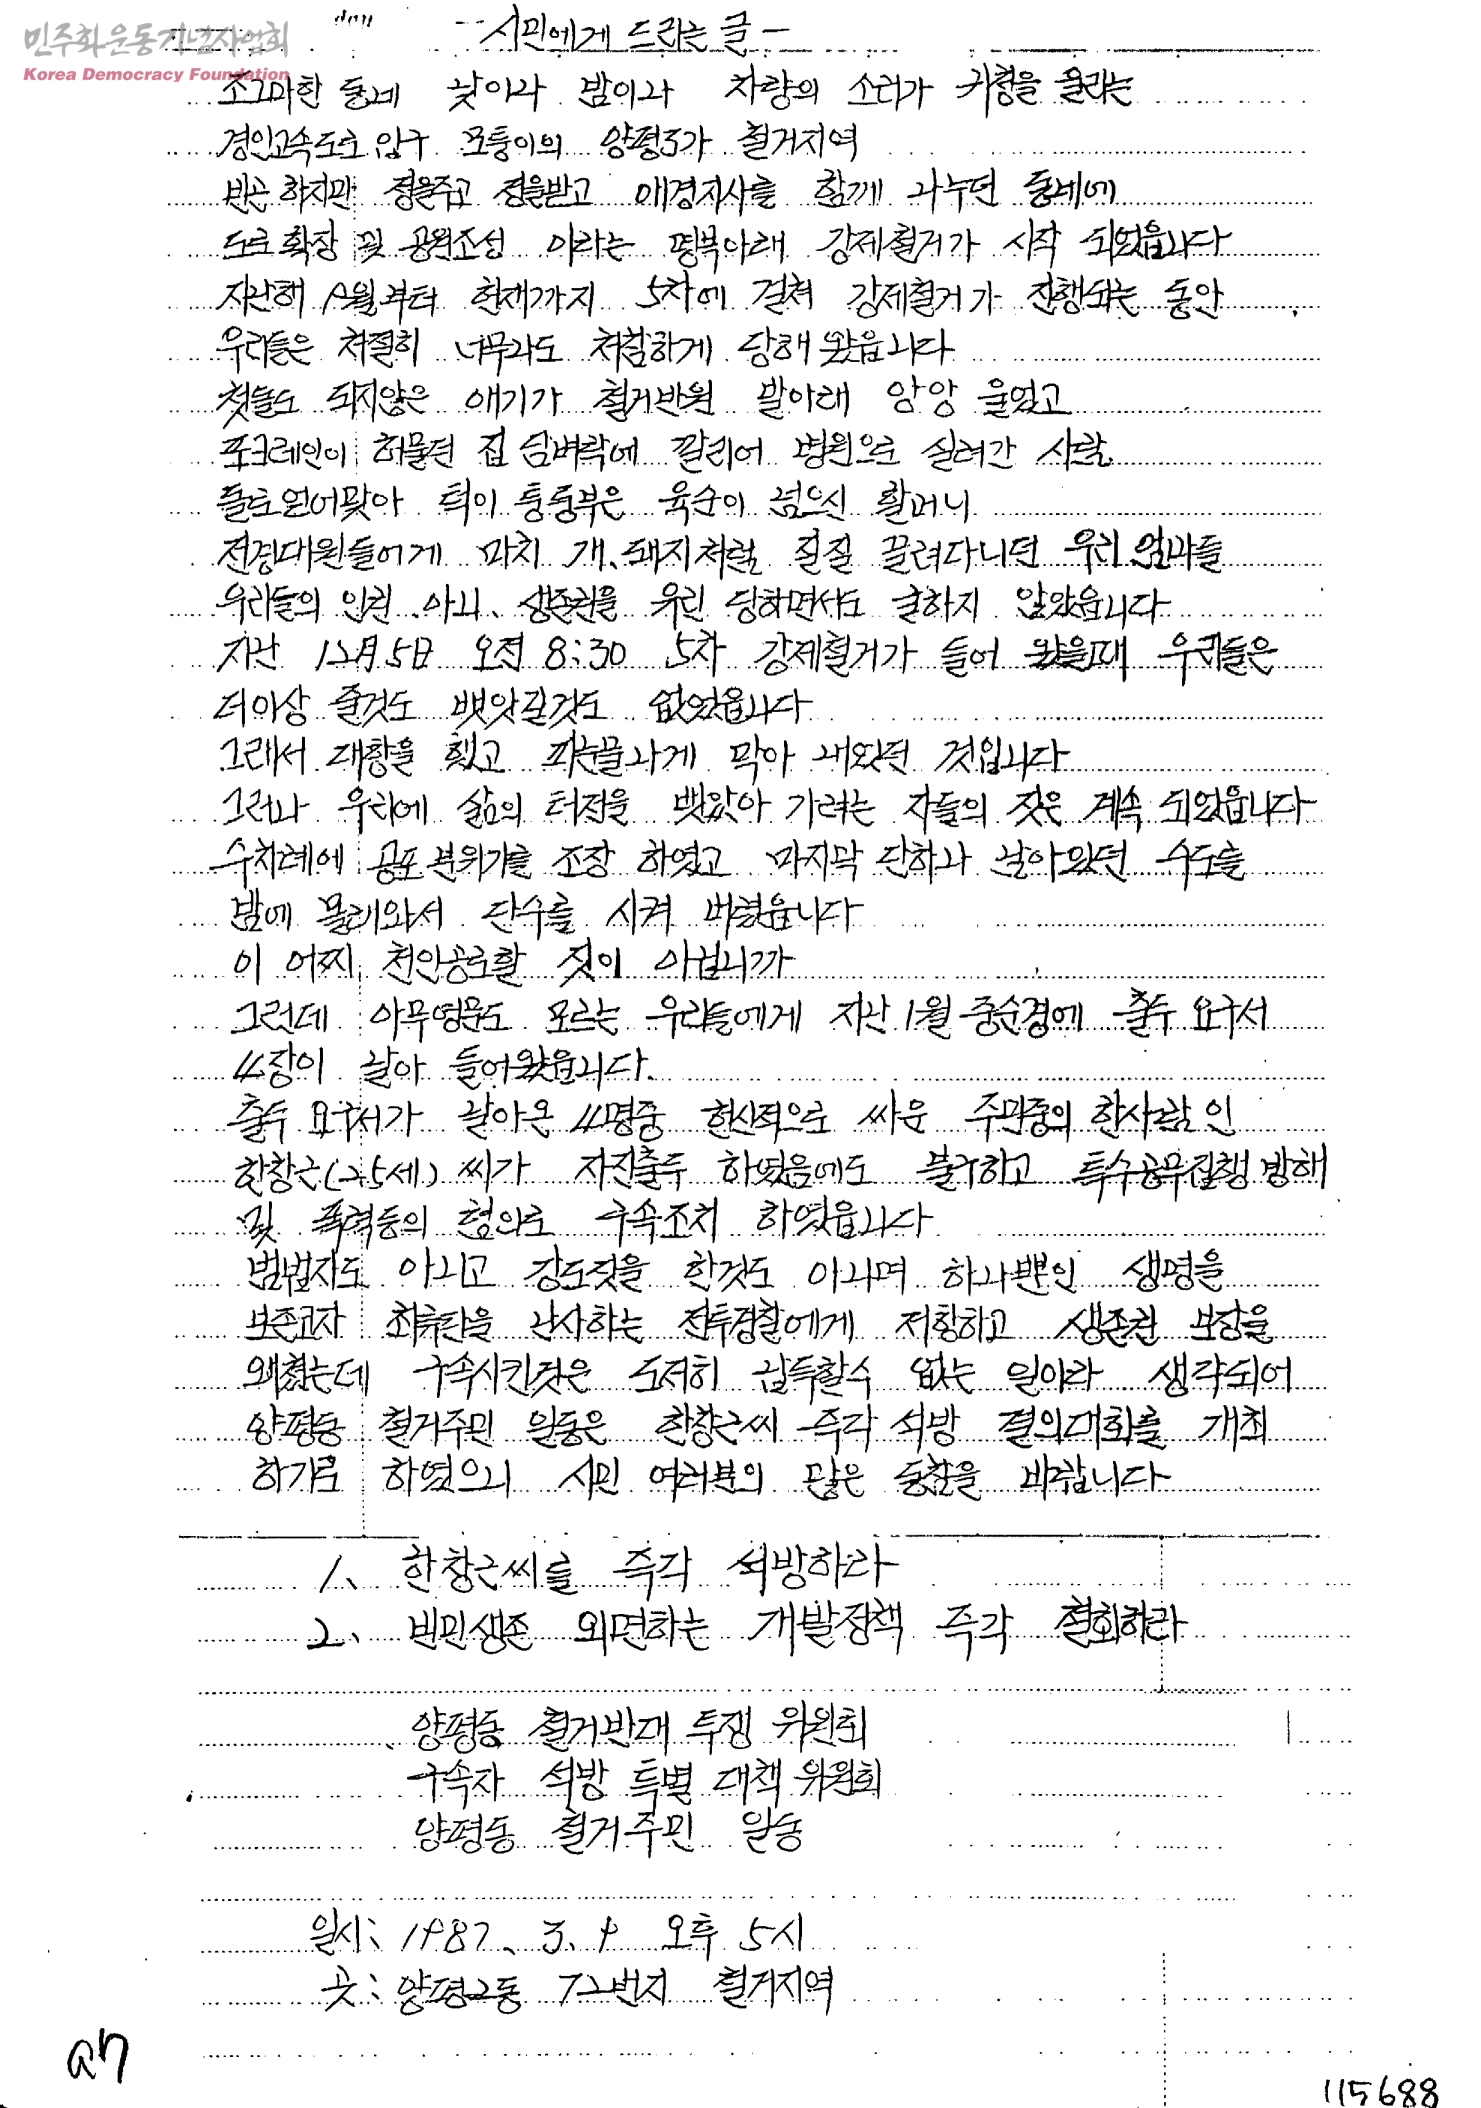 민주화운동기념사업회
Korea Democracy Foundation
- 시민에게 드리는 글 -
조그마한 동네 낮이나 밤이나 차량의 소리가 귀청을 울리는
경인고속도로 입구 모퉁이의 양평3가 철거지역
빈곤 하지만 정을주고 정을받고 애경지사를 함께 나누던 동네에
도로확장 및 공원조성 이라는 명북아래 강제철거가 시작 되었읍니다
지난해 8월부터 현재까지 5차에 걸쳐 강제철거가 진행되는 동안
우리들은 처절히 너무나도 처참하게 당해 왔읍니다
첫돌도 되지않은 애기가 철거반원 발아래 앙앙 울었고
포크레인이 허물던 집 담벼락에 깔리어 병원으로 실려간 사람
돌로얻어맞아 턱이 퉁퉁부은 육순이 넘으신 할머니
전경대원들에게 마치 개、돼지처럼 질질 끌려다니던 우리 엄마들
우리들의 인권 아니、생존권을 유린 당하면서도 굴하지 않았읍니다
지난 12月5日 오전 8:30 5차 강제철거가 들어 왔을때 우리들은
더이상 줄것도 뺏앗길것도 없었읍니다
그래서 대항을 했고 피눈물나게 막아 내왔던 것입니다
그러나 우리에 삶의 터전을 뺏았아 가려는 자들의 짓은 계속 되었읍니다
수차례에 공포분위기를 조장 하였고 마지막 단하나 남아있던 수도를
밤에 몰래와서 단수를 시켜 버렸읍니다
이 어찌 천인공로할 짓이 아닙니까
그런데 아무영문도 모르는 우리들에게 지난 1월 중순경에 출두 요구서
11장이 날아 들어왔읍니다.
출두 요구서가 날아온 11명중 헌신적으로 싸운 주민중의 한사람인
한창근(25세)씨가 자진출두 하였음에도 불구하고 특수공무집행방해
및 폭력등의 혐의로 구속조치 하였읍니다
범법자도 아니고 강도짓을 한것도 아니며 하나뿐인 생명을
보존코자 최류탄을 난사하는 전투경찰에게 저항하고 생존권 보장을
왜쳤는데 구속시킨것은 도저히 납득할수 없는 일이라 생각되어
양평동 철거주민 일동은 한창근씨 즉각 석방 결의대회를 개최
하기로 하였으니 시민 여러분의 많은 동참을 바랍니다
1、 한창근씨를 즉각 석방하라
2、 빈민생존 외면하는 개발정책 즉각 철회하라
양평동 철거반대 투쟁 위원회
구속자 석방 특별 대책 위원회
양평동 철거주민 일동
일시: 1987、3、9 오후 5시
곳: 양평2동 72번지 철거지역
115688